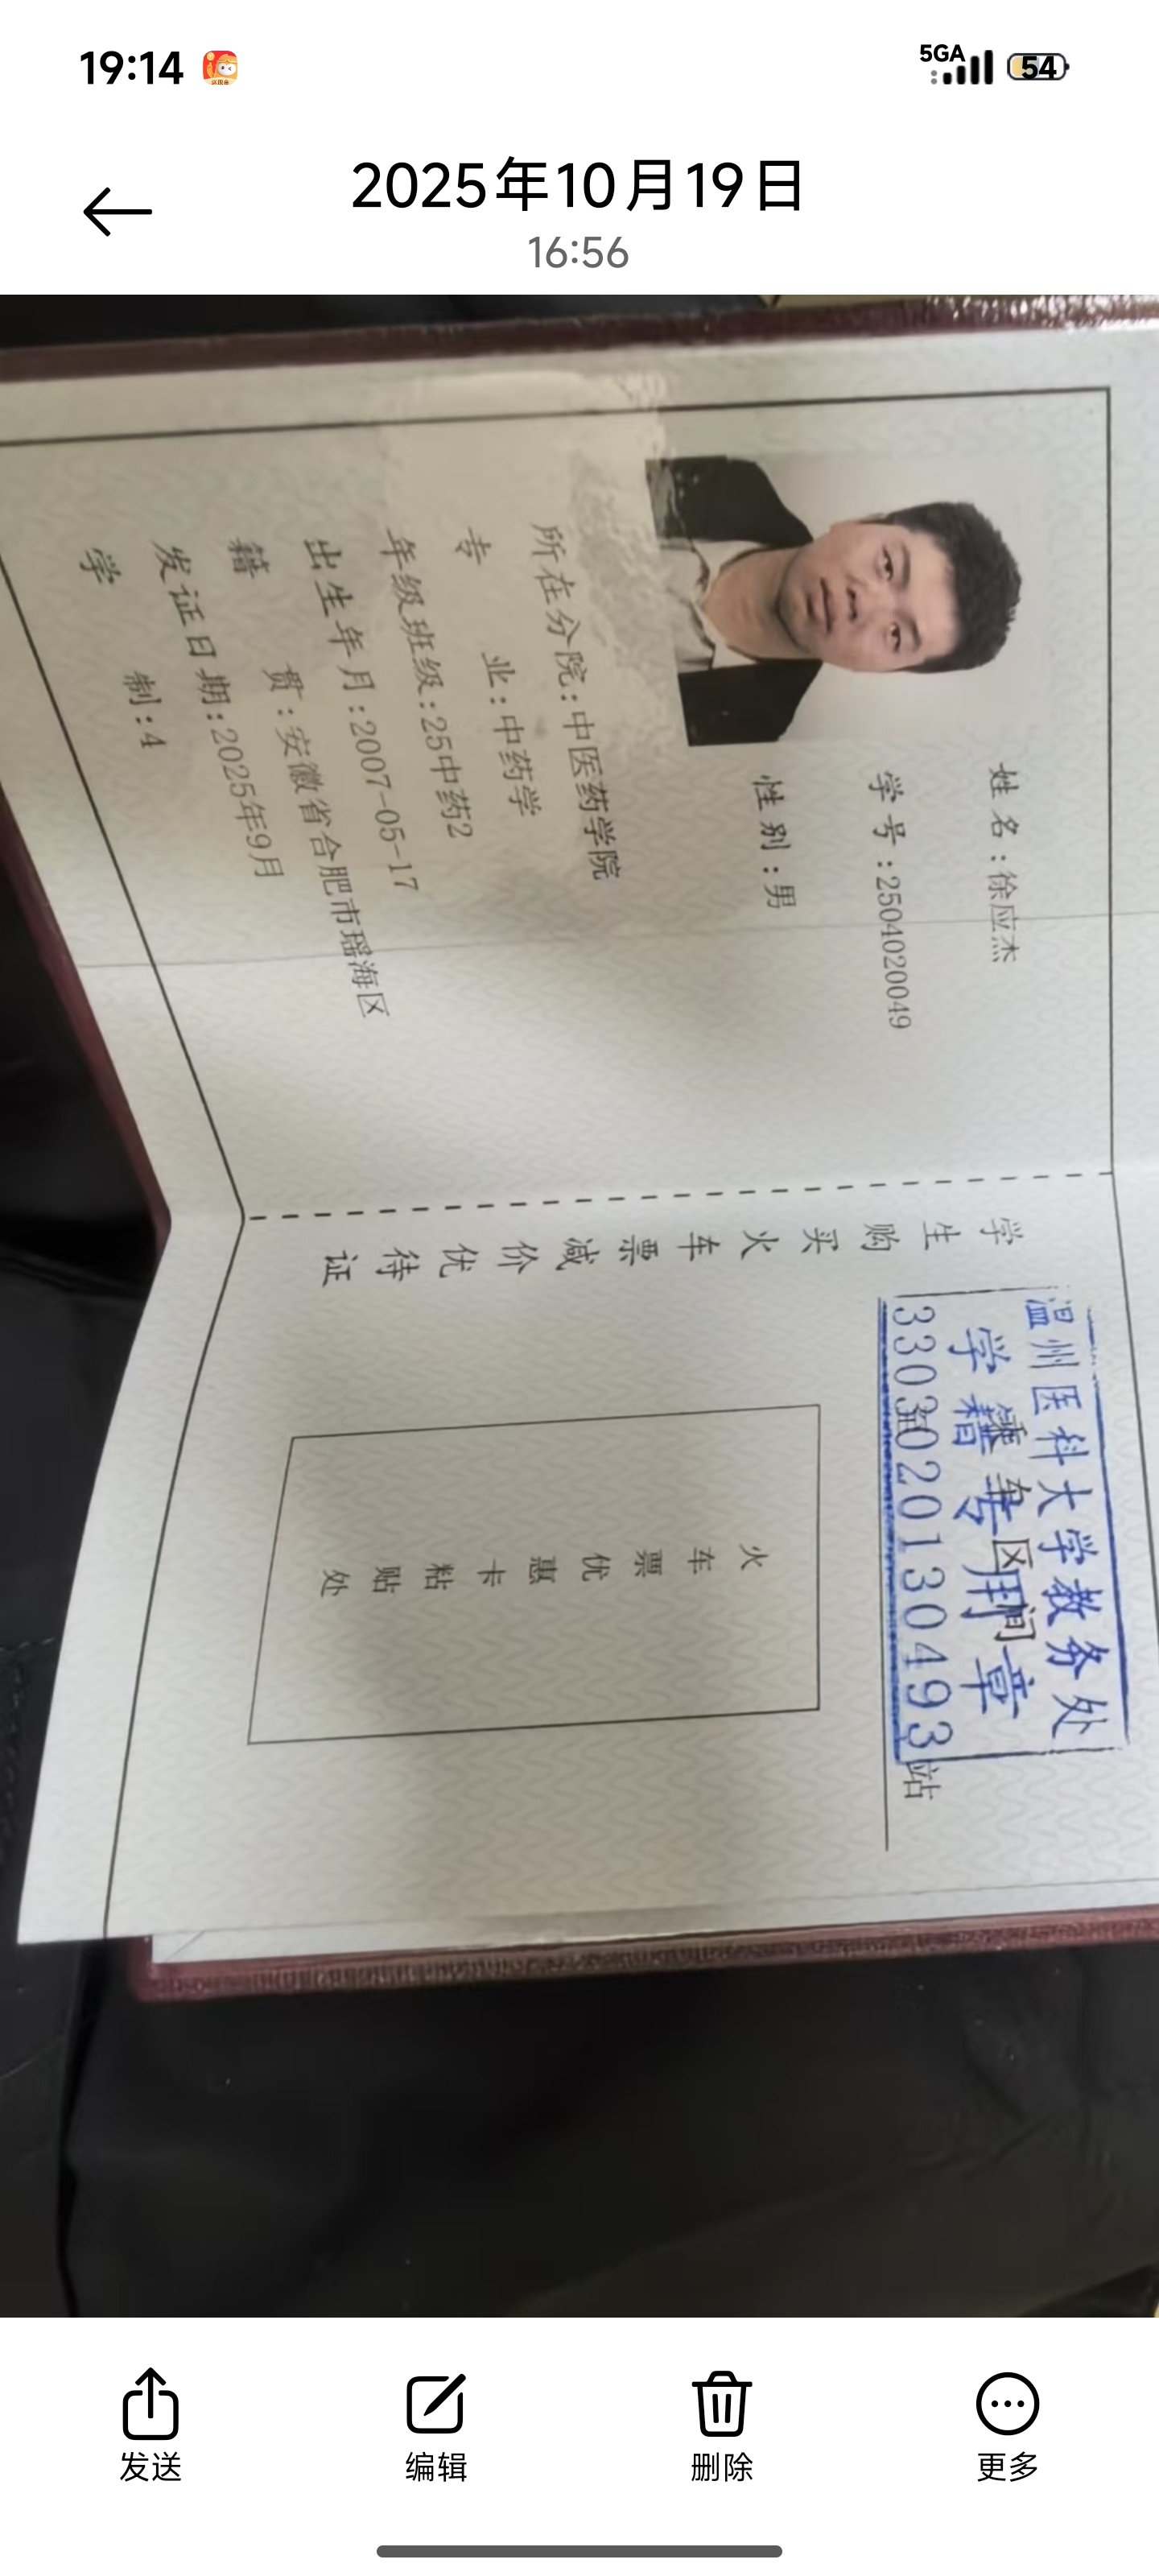 19:14
5GA
54
2025年10月19日
16:56
姓名:徐应杰
学号:2504020049
性别:男
所在分院:中医药学院
专业:中药学
年级班级:25中药2
出生年月:2007-05-17
籍贯:安徽省合肥市瑶海区
发证日期:2025年9月
学制:4
温州医科大学教务处
学籍专用章
乘车区间
3303020130493
站
学生购买火车票减价优待证
火车票优惠卡粘贴处
发送
编辑
删除
更多